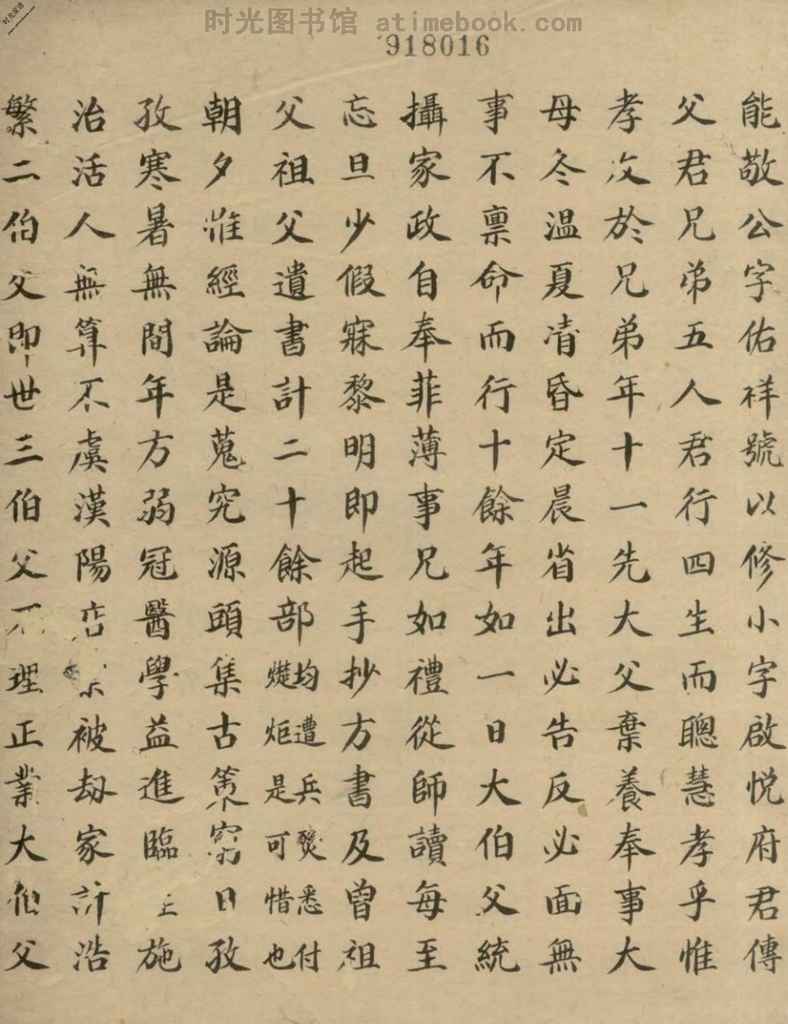 时光图书馆 atimebook.com
918016
能敬公字佑祥號以修小字啟悦府君傳
父君兄弟五人君行四生而聰慧孝乎惟
孝友於兄弟年十一先大父棄養奉事大
母冬温夏凊昏定晨省出必告反必面無
事不禀命而行十餘年如一日大伯父統
攝家政自奉菲薄事兄如禮從師讀每至
忘旦少假寐黎明即起手抄方書及曾祖
父祖父遺書計二十餘部均遭兵燹悉付爁炬是可惜也
朝夕惟經論是蒐究源頭集古策窮日孜
孜寒暑無間年方弱冠醫學益進臨症施
治活人無算不虞漢陽店業被劫家計浩
繁二伯父即世三伯父不理正業大伯父